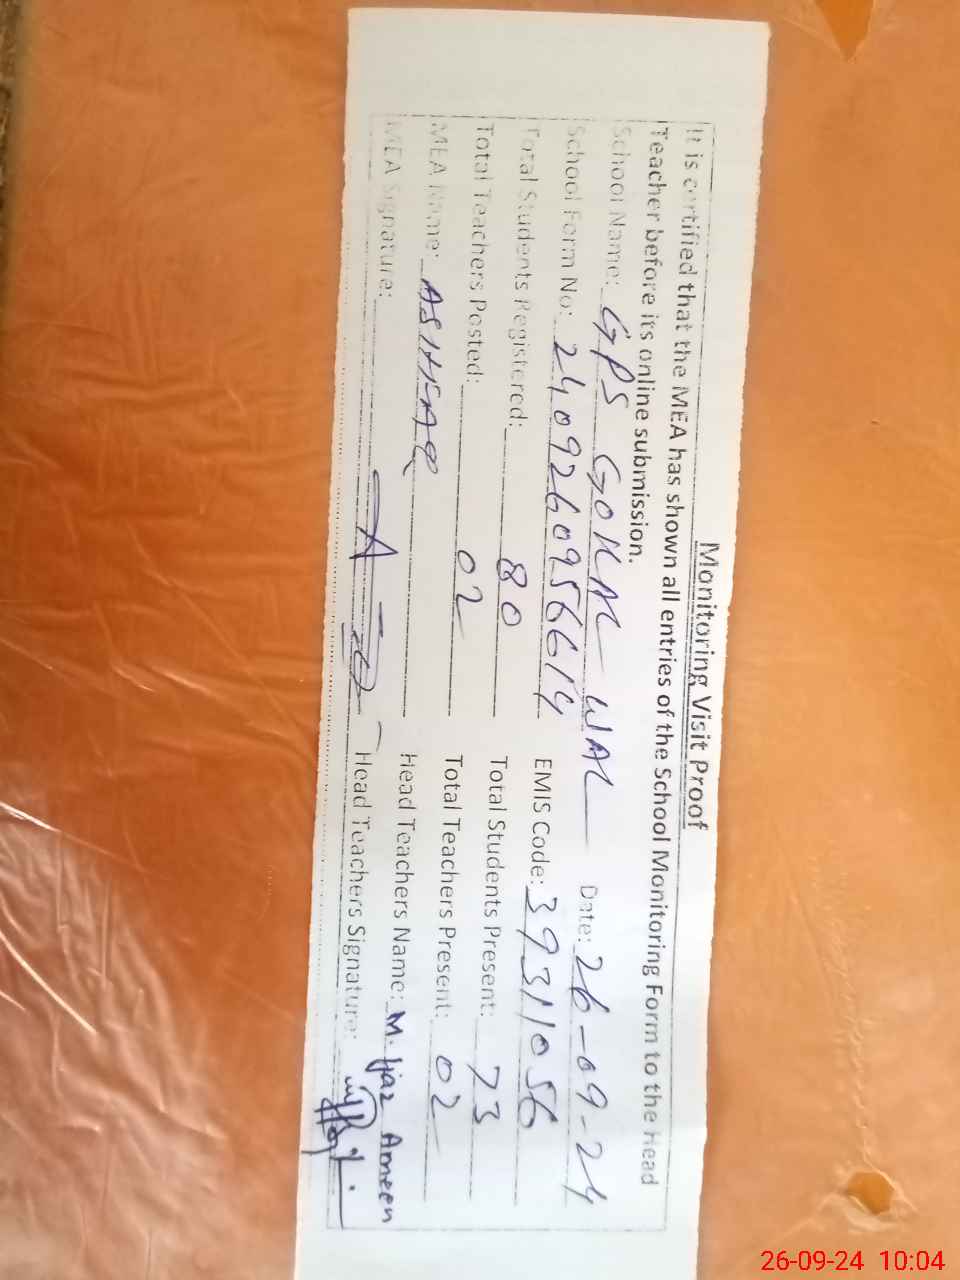 Monitoring Visit Proof
It is certified that the MEA has shown all entries of the School Monitoring Form to the Head
Teacher before its online submission.
School Name: GPS GOHAL WAL Date: 26-09-24
School Form No: 24092609566614 EMIS Code: 39311056
Total Students Registered: 80 Total Students Present: 73
Total Teachers Posted: 02 Total Teachers Present: 02
MEA Name: ASHFAQ Head Teachers Name: M. Ijaz Ameen
MEA Signature: Head Teachers Signature:
26-09-24 10:04